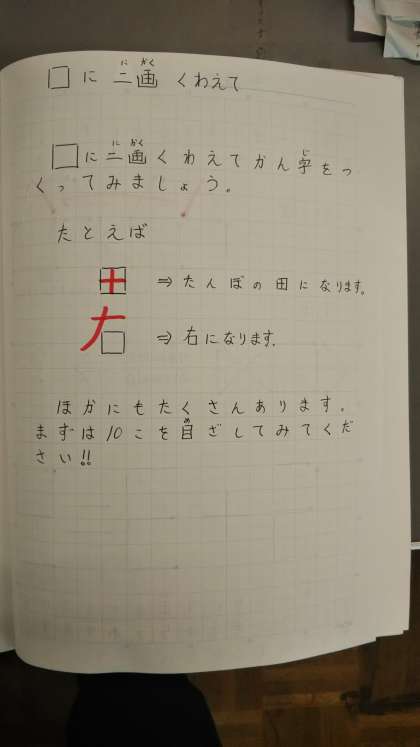 □に二画くわえて
にかく
□に二画くわえてかん字をつ
にかく
じ
くってみましょう。
たとえば
田⇒たんぼの田になります。
右⇒右になります.
ほかにもたくさんあります。
まずは10こを目ざしてみてくだ
め
さい!!